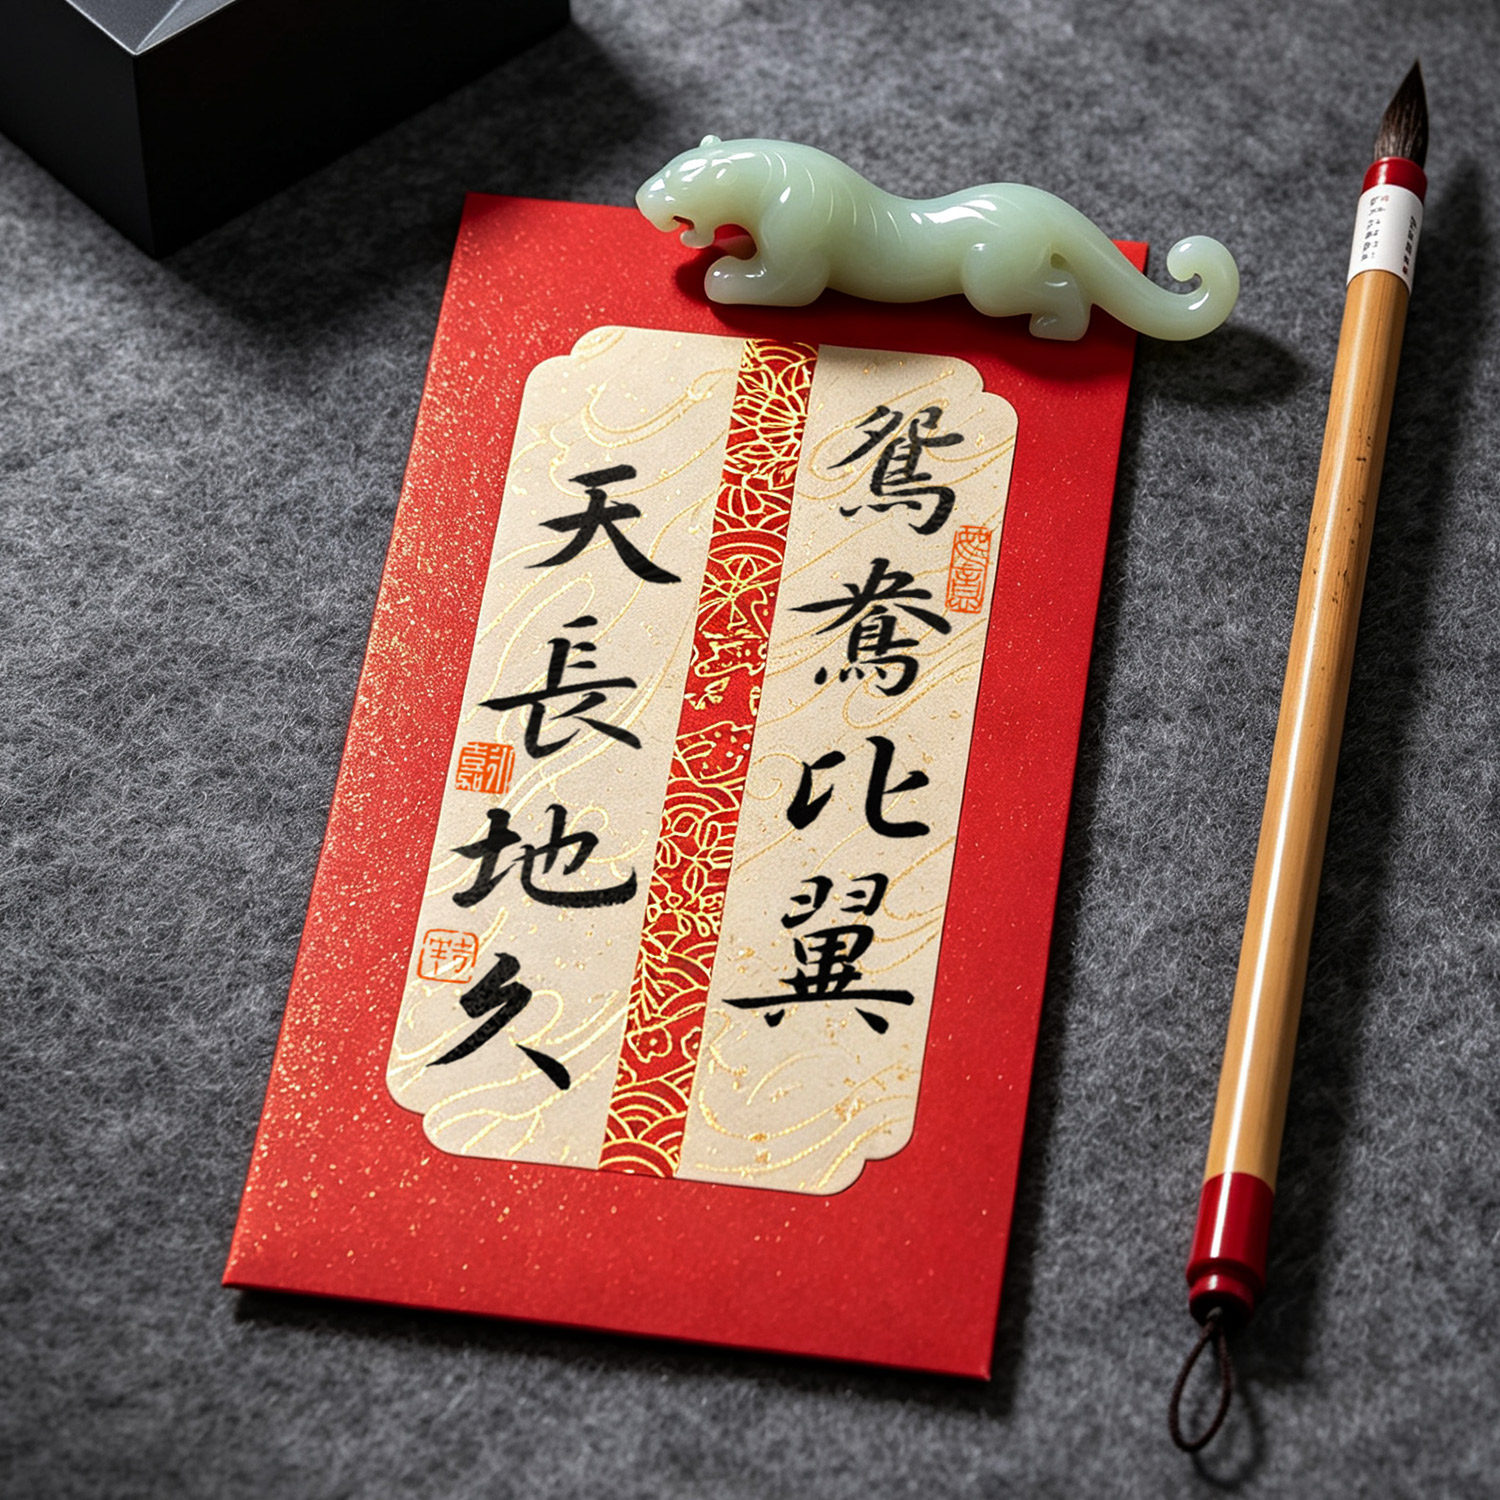 鴛鴦比翼
天長地久